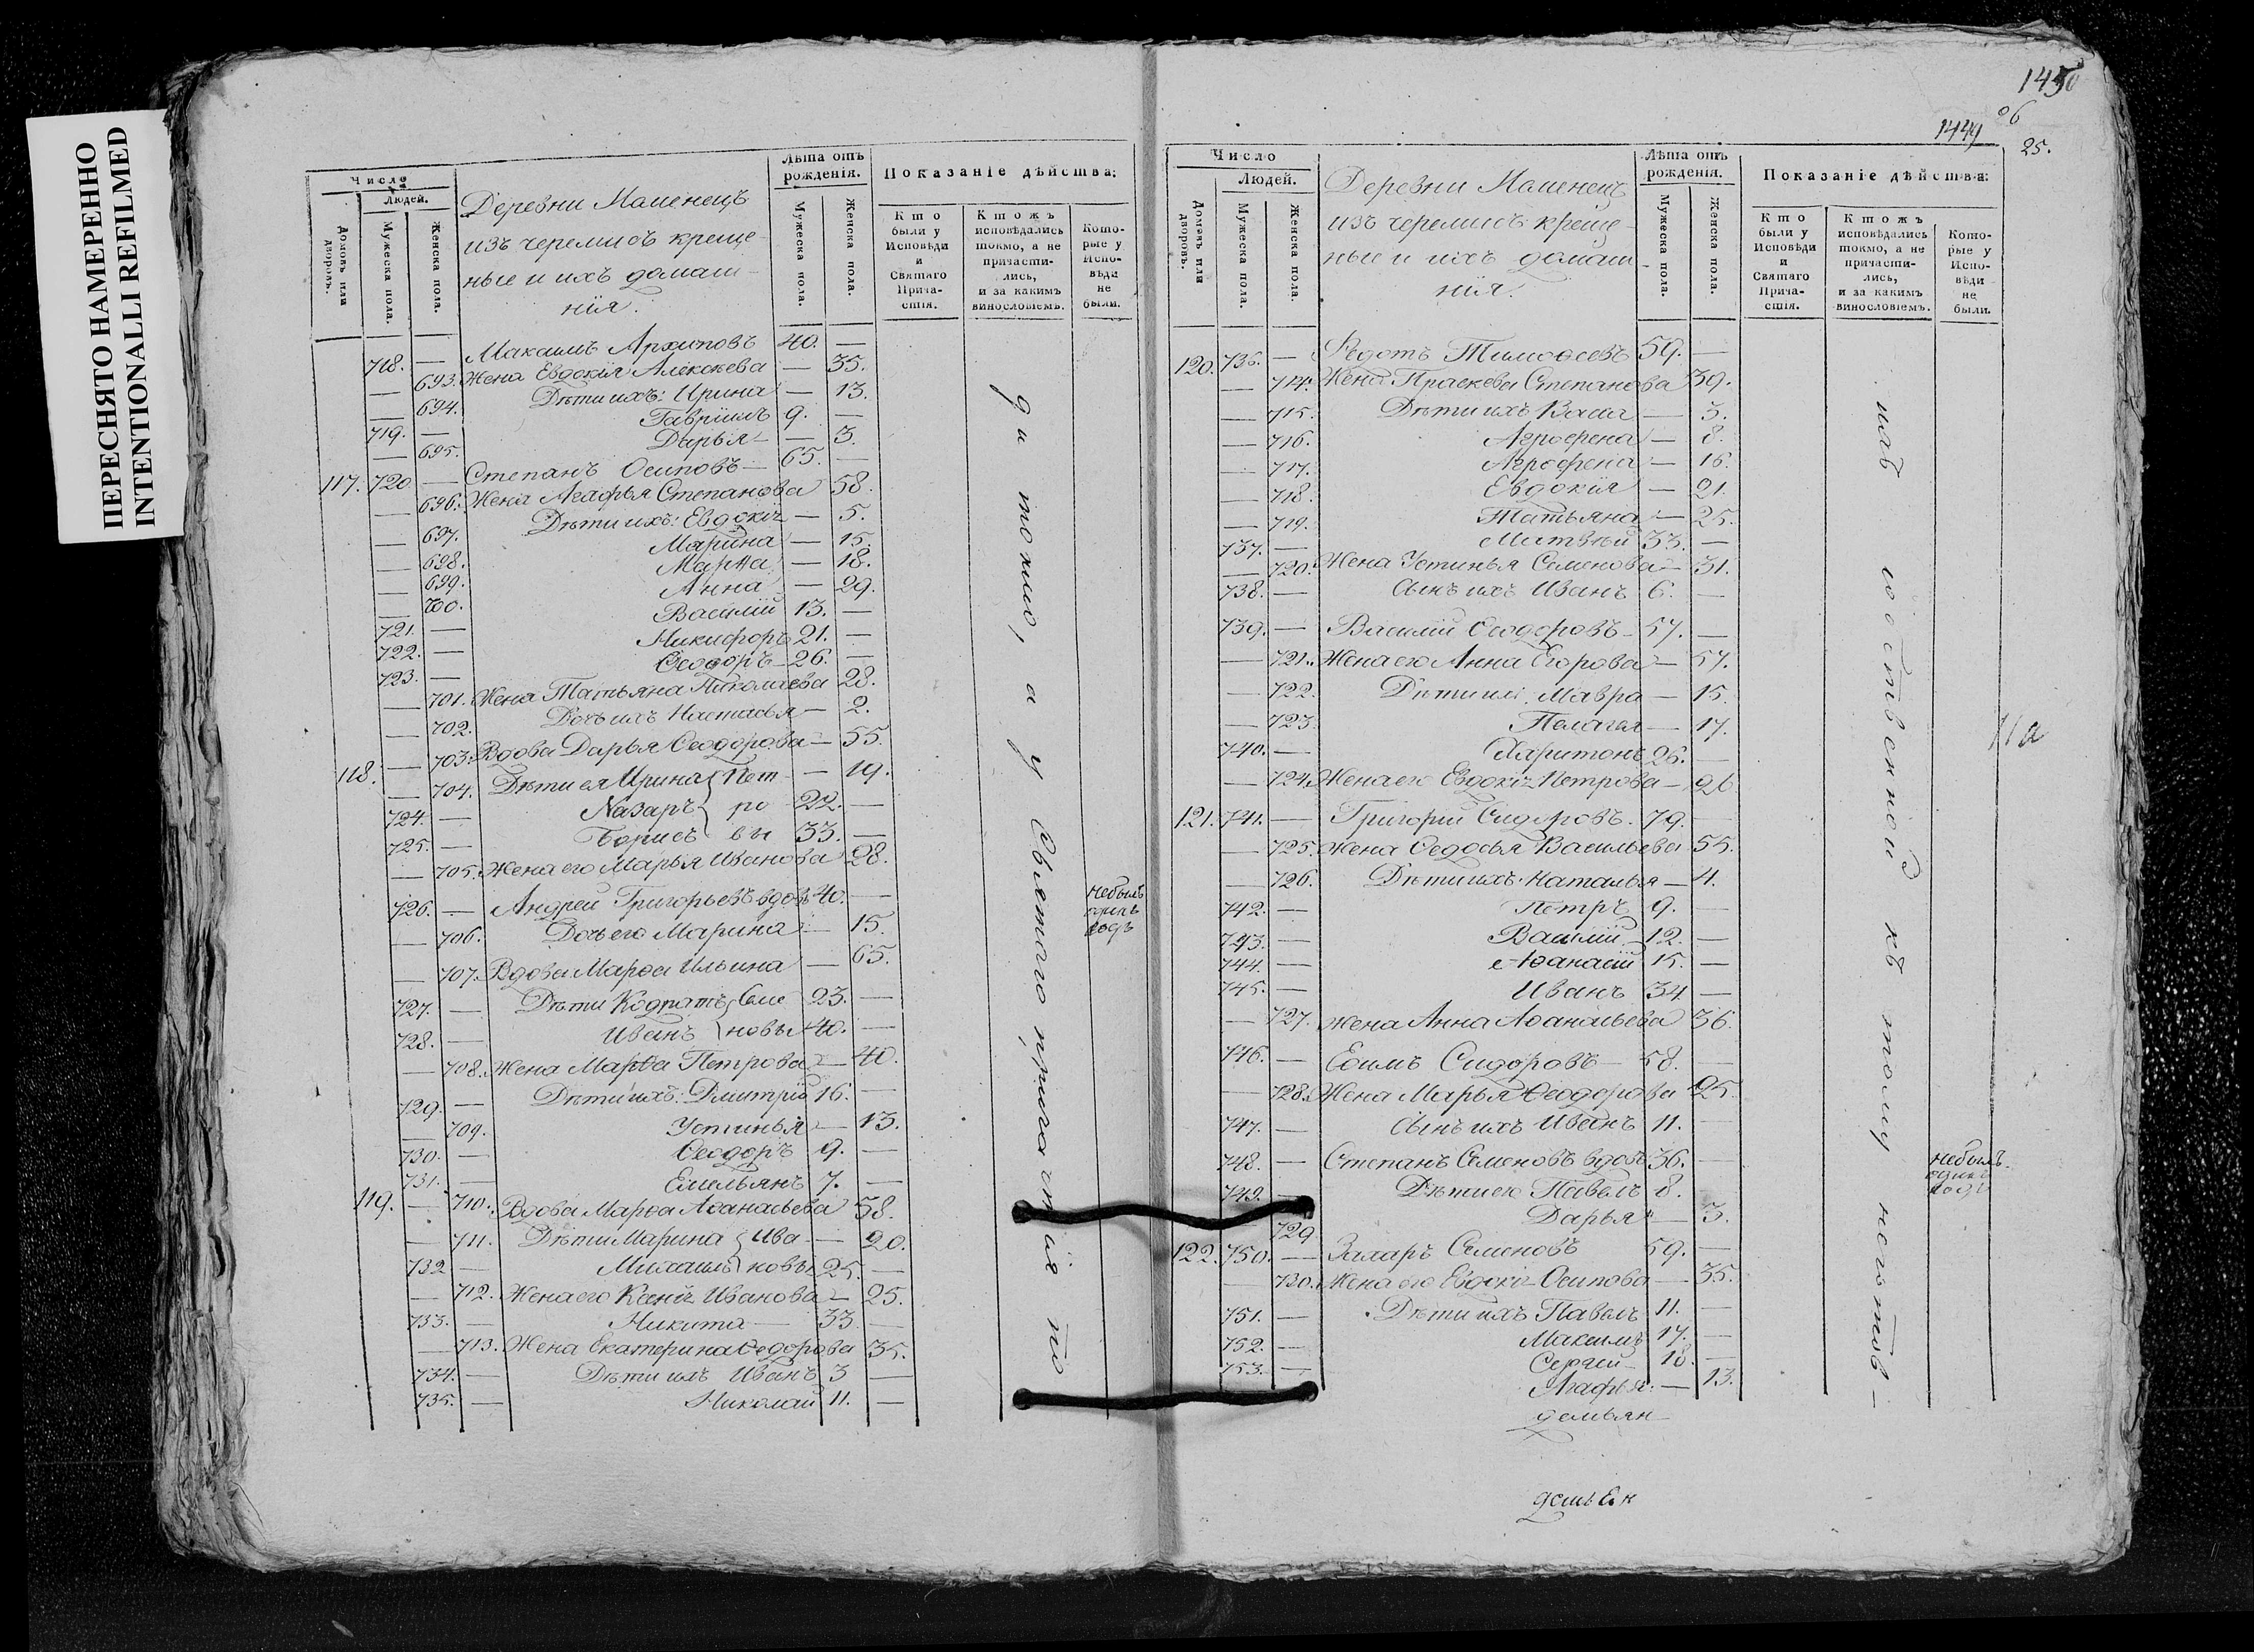 ПЕРЕСНЯТО НАМЕРЕННО
INTENTIONALLI REFILMED
Число
Людей.
Домовъ или дворовъ.
Мужеска пола.
Женска пола.
Деревни Маменецъ
изъ черемисъ креще-
ные и ихъ домаш-
нія.
Лѣта отъ рожденія.
Мужеска пола.
Женска пола.
Показаніе дѣйства:
Кто были у Исповѣди и Святаго Прича-стія.
Ктожъ исповѣдались токмо, а не причасти-лись, и за какимъ винословіемъ.
Кото-рые у Испо-вѣди не были.
718. — Максимъ Архиповъ 40. —
— 693. Жена Евдокія Алексѣева — 35.
— 694. Дѣти ихъ: Ирина — 13.
719. — Гавріилъ 9. —
— 695. Дарья — 3.
117. 720 — Степанъ Осиповъ — 65. —
— 696. Жена Агафья Степанова 58.
— 697. Дѣти ихъ: Евдокія — 5.
— 698. Марина — 15.
— 699. Марѳа — 18.
— 700. Анна — 29.
721. — Василій 13. —
722. — Никифоръ 21. —
723. — Ѳеодоръ 26. —
— 701. Жена Татьяна Николаева 28.
— 702. Дочь ихъ Настасья — 2.
118. — 703. Вдова Дарья Ѳеодорова — 55.
— 704. Дѣти ея Ирина Пет- — 19.
724. — Назаръ ро 22. —
725. — Борисъ вы 33. —
— 705. Жена его Марья Иванова 28.
726. — Андрей Григорьевъ вдовъ 40. — небылъ одинъ годъ
— 706. Дочь его Марина — 15.
— 707. Вдова Марѳа Ильина — 65.
727. — Дѣти Кодратъ Семе 23. —
728. — Иванъ новы 40. —
— 708. Жена Марѳа Петрова — 40.
729. — Дѣти ихъ: Дмитрій 16. —
— 709. Устинья — 13.
730. — Ѳеодоръ 9. —
731. — Емельянъ 7. —
119. — 710. Вдова Марѳа Аѳанасьева 58.
— 711. Дѣти Марина Ива — 20.
732 — Михаилъ новы 25. —
— 712. Жена его Ксенія Иванова — 25.
733. — Никита — 33. —
— 713. Жена Екатерина Ѳедорова 35.
734. — Дѣти ихъ Иванъ 3 —
735. — Николай 11. —
ди токмо, а у Святаго причастія по
1450
об
1449
25.
Число
Людей.
Домовъ или дворовъ.
Мужеска пола.
Женска пола.
Деревни Маменецъ
изъ черемисъ креще-
ные и ихъ домаш
нія.
Лѣта отъ рожденія.
Мужеска пола.
Женска пола.
Показаніе дѣйства:
Кто были у Исповѣди и Святаго Прича-стія.
Ктожъ исповѣдались токмо, а не причасти-лись, и за какимъ винословіемъ.
Кото-рые у Испо-вѣди не были.
120. 736. — Ѳедотъ Тимоѳеевъ 59. —
— 714. Жена Праскева Степанова 39.
— 715. Дѣти ихъ Васса — 3.
— 716. Агрофена — 8.
— 717. Агрофена — 16.
— 718. Евдокія — 21.
— 719. Татьяна — 25.
737. — Матвѣй 33. —
— 720. Жена Устинья Семенова — 31.
738. — Сынъ ихъ Иванъ 6. —
739. — Василій Ѳеодоровъ — 57. —
— 721. Жена его Анна Егорова — 57.
— 722. Дѣти ихъ Мавра — 15.
— 723. Пелагея — 17.
740. — Харитонъ 26. —
— 724. Жена его Евдокія Петрова — 26
121. 741. — Григорій Сидоровъ. 79. —
— 725. Жена Ѳедосья Васильева 55.
— 726. Дѣти ихъ. Наталья — 4.
742. — Петръ 9. —
743. — Василій 12. —
744. — Аѳанасій 15. —
745. — Иванъ 34 —
— 727. Жена Анна Аѳанасьева 36.
746. — Еѳимъ Сидоровъ — 58. —
— 728. Жена Марья Ѳеодорова 25.
747. — Сынъ ихъ Иванъ 11. —
748. — Степанъ Семеновъ вдовъ 36. — небылъ одинъ годъ
749. — Дѣти его Павелъ 8. —
— 729 Дарья — 3.
122. 750. — Захаръ Семеновъ 59. —
— 730. Жена его Евдокія Осипова — 35.
751. — Дѣти ихъ Павелъ 11. —
752. — Максимъ 17. —
753. — Сергей 18. —
Агафья — 13.
демьян
ихъ собственной къ тому неготов-